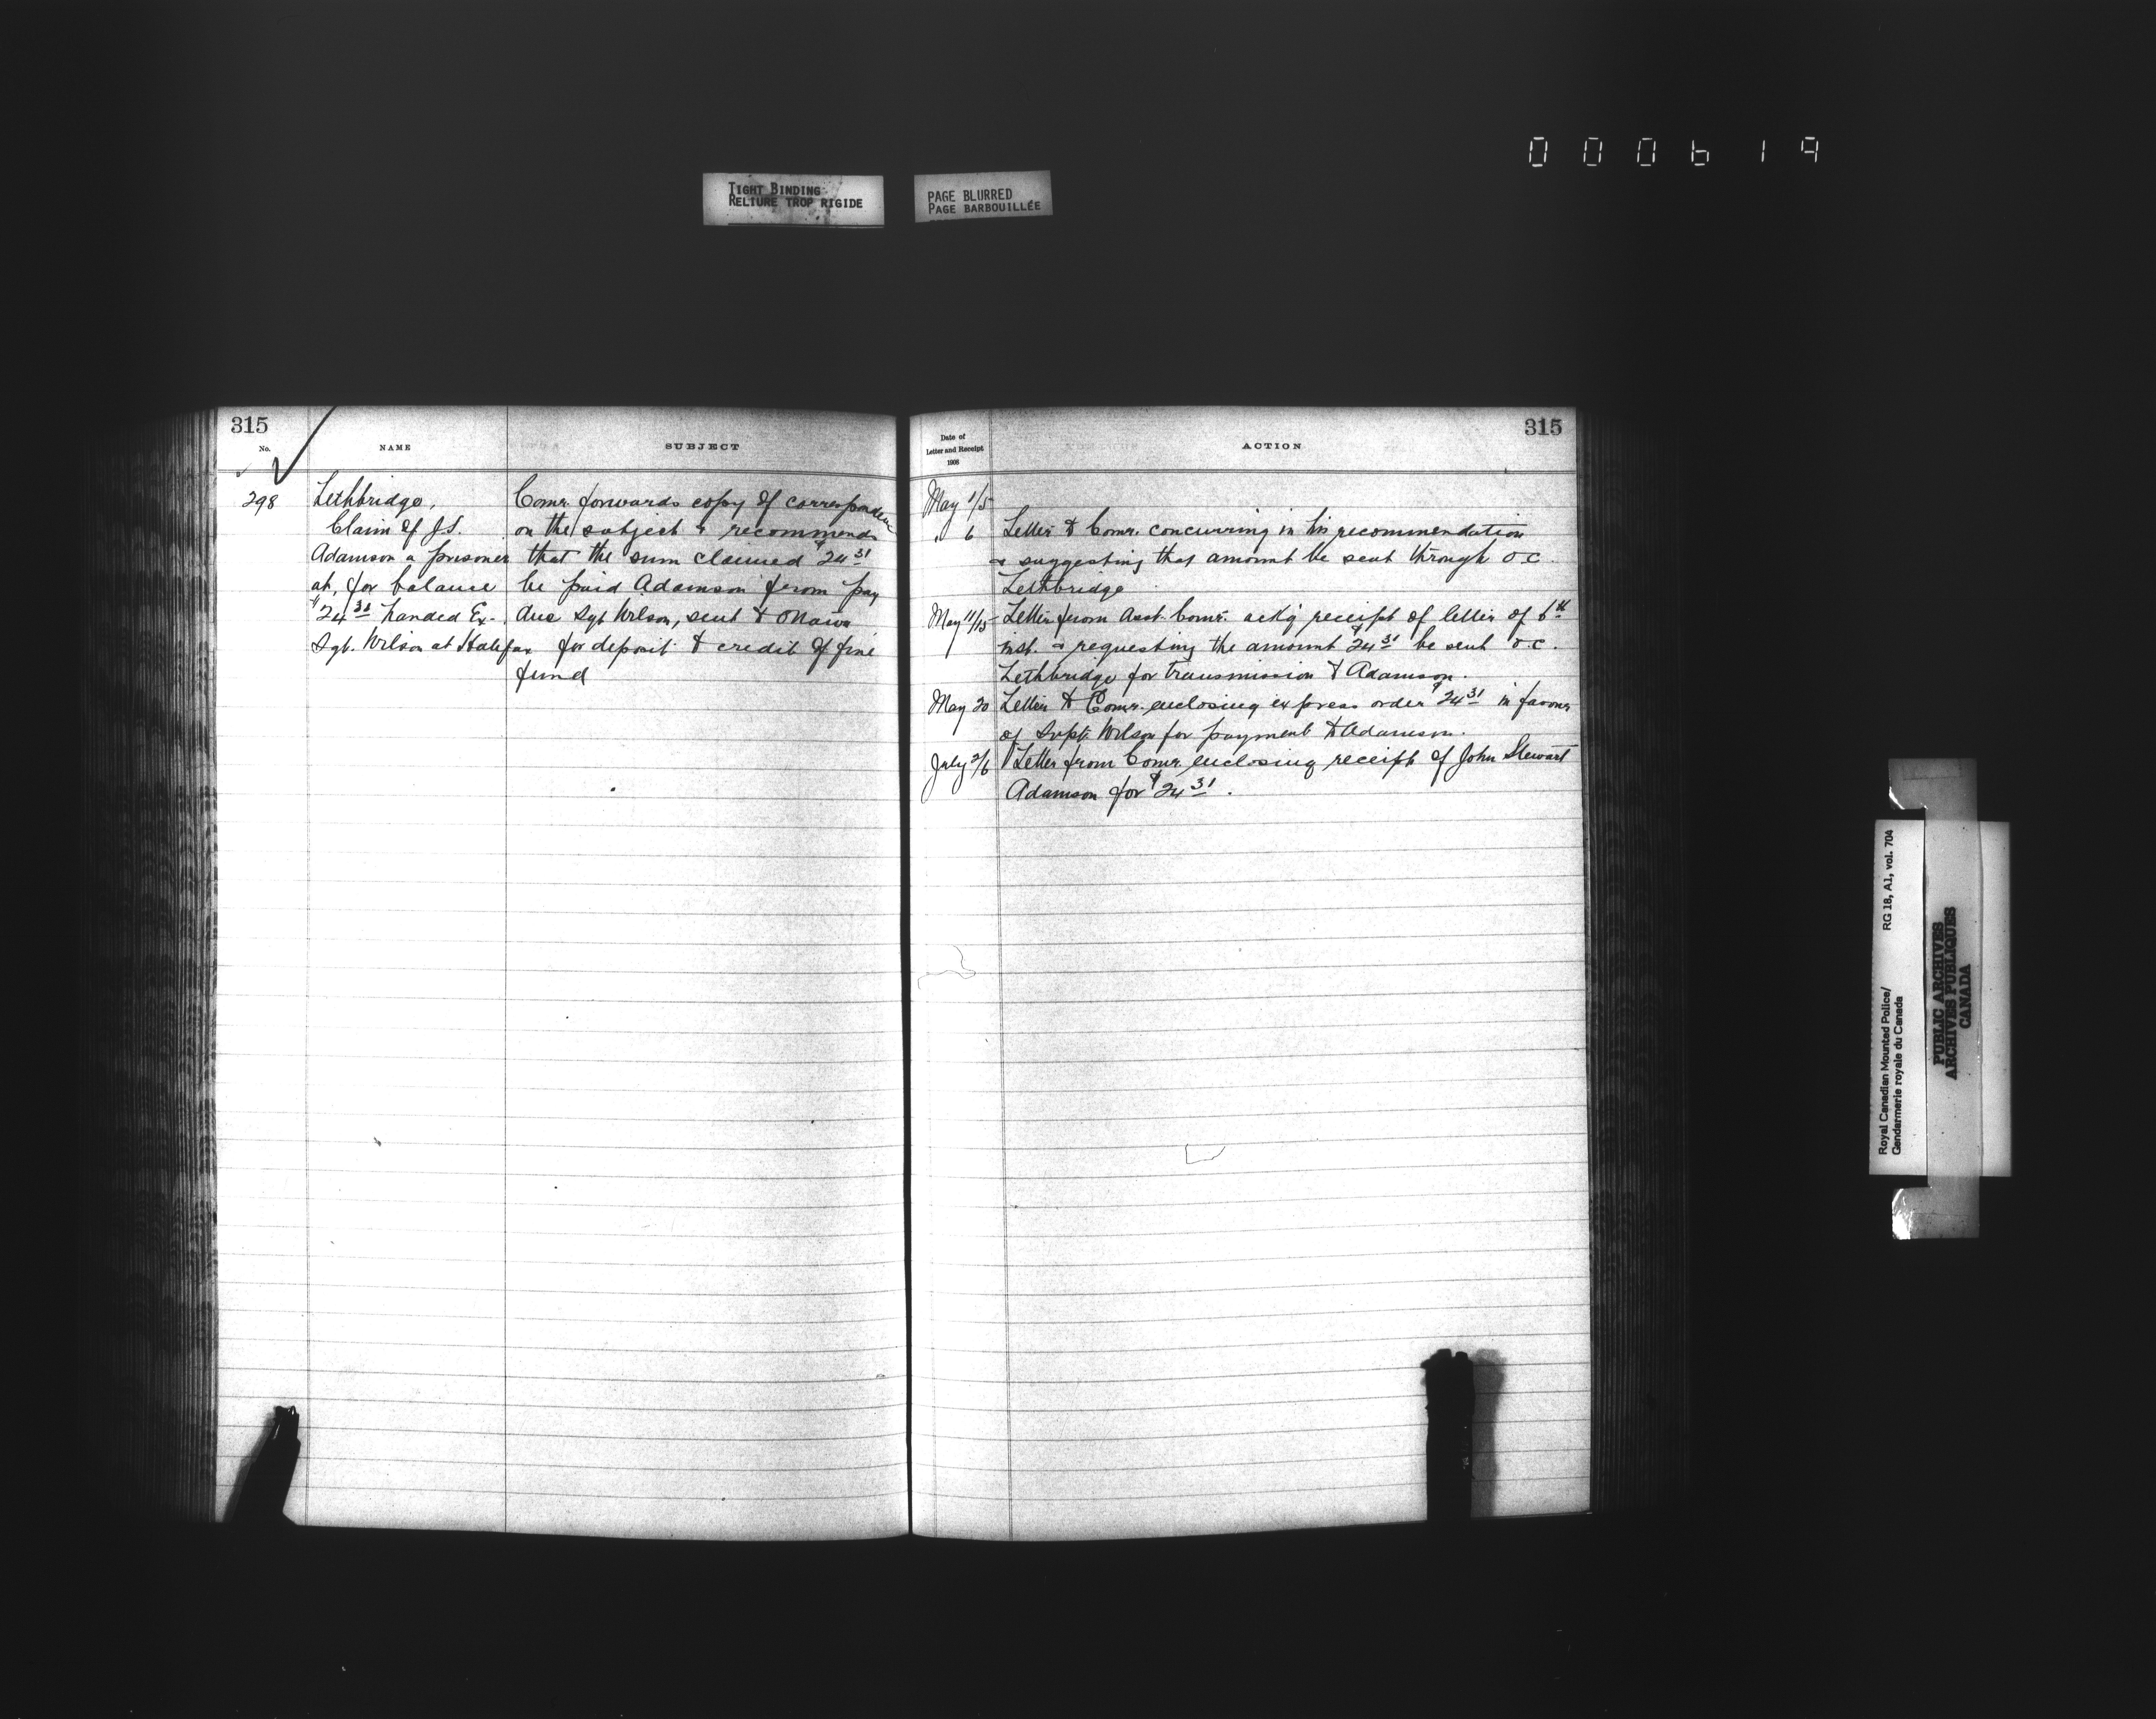 000619
TIGHT BINDING
RELIURE TROP RIGIDE
PAGE BLURRED
PAGE BARBOUILLÉE
315
No.
NAME
SUBJECT
298
Lethbridge,
Claim of J.S.
Adamson a prisoner
at, for balance
$24 31 handed Ex-
Sgt. Wilson at Halifax
Comr. forwards copy of correspondence
on the subject & recommends
that the sum claimed $24 31
be paid Adamson from pay
due Sgt Wilson, sent to Ottawa
for deposit to credit of fine
fund
315
Date of
Letter and Receipt
1908
ACTION
May 1/5
" 6 Letter to Comr. concurring in his recommendation
& suggesting that amount be sent through O.C.
Lethbridge
May 11/15 Letter from Asst. Comr. ack'g receipt of letter of 6th
inst. & requesting the amount $24 31 be sent O.C.
Lethbridge for transmission to Adamson.
May 20 Letter to Comr. enclosing express order $24 31 in favour
of Supt. Wilson for payment to Adamson.
July 2/6 Letter from Comr. enclosing receipt of John Stewart
Adamson for $24 31.
Royal Canadian Mounted Police/
Gendarmerie royale du Canada
RG 18, A1, vol. 704
PUBLIC ARCHIVES
ARCHIVES PUBLIQUES
CANADA